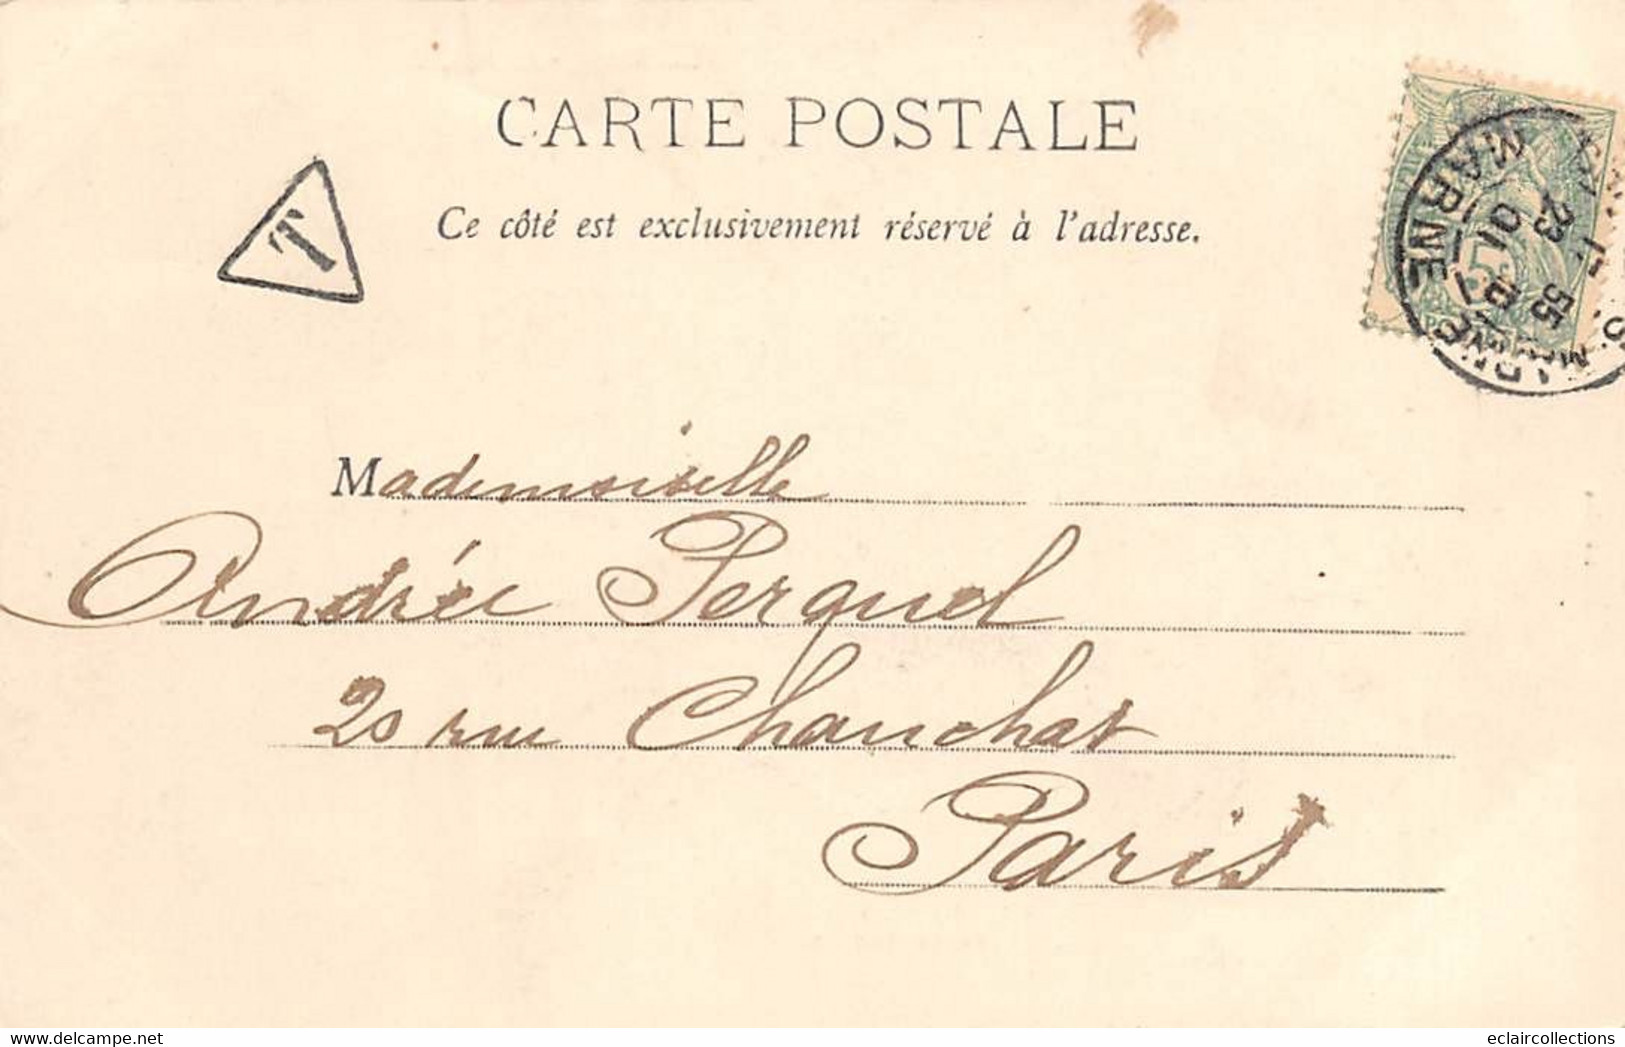 CARTE POSTALE
T
Ce côté est exclusivement réservé à l'adresse.
MARNE
23 55
10
MARNE
5c
Mademoiselle
Andrée Perquel
20 rue Chauchat
Paris
www.delcampe.net
eclaircollections